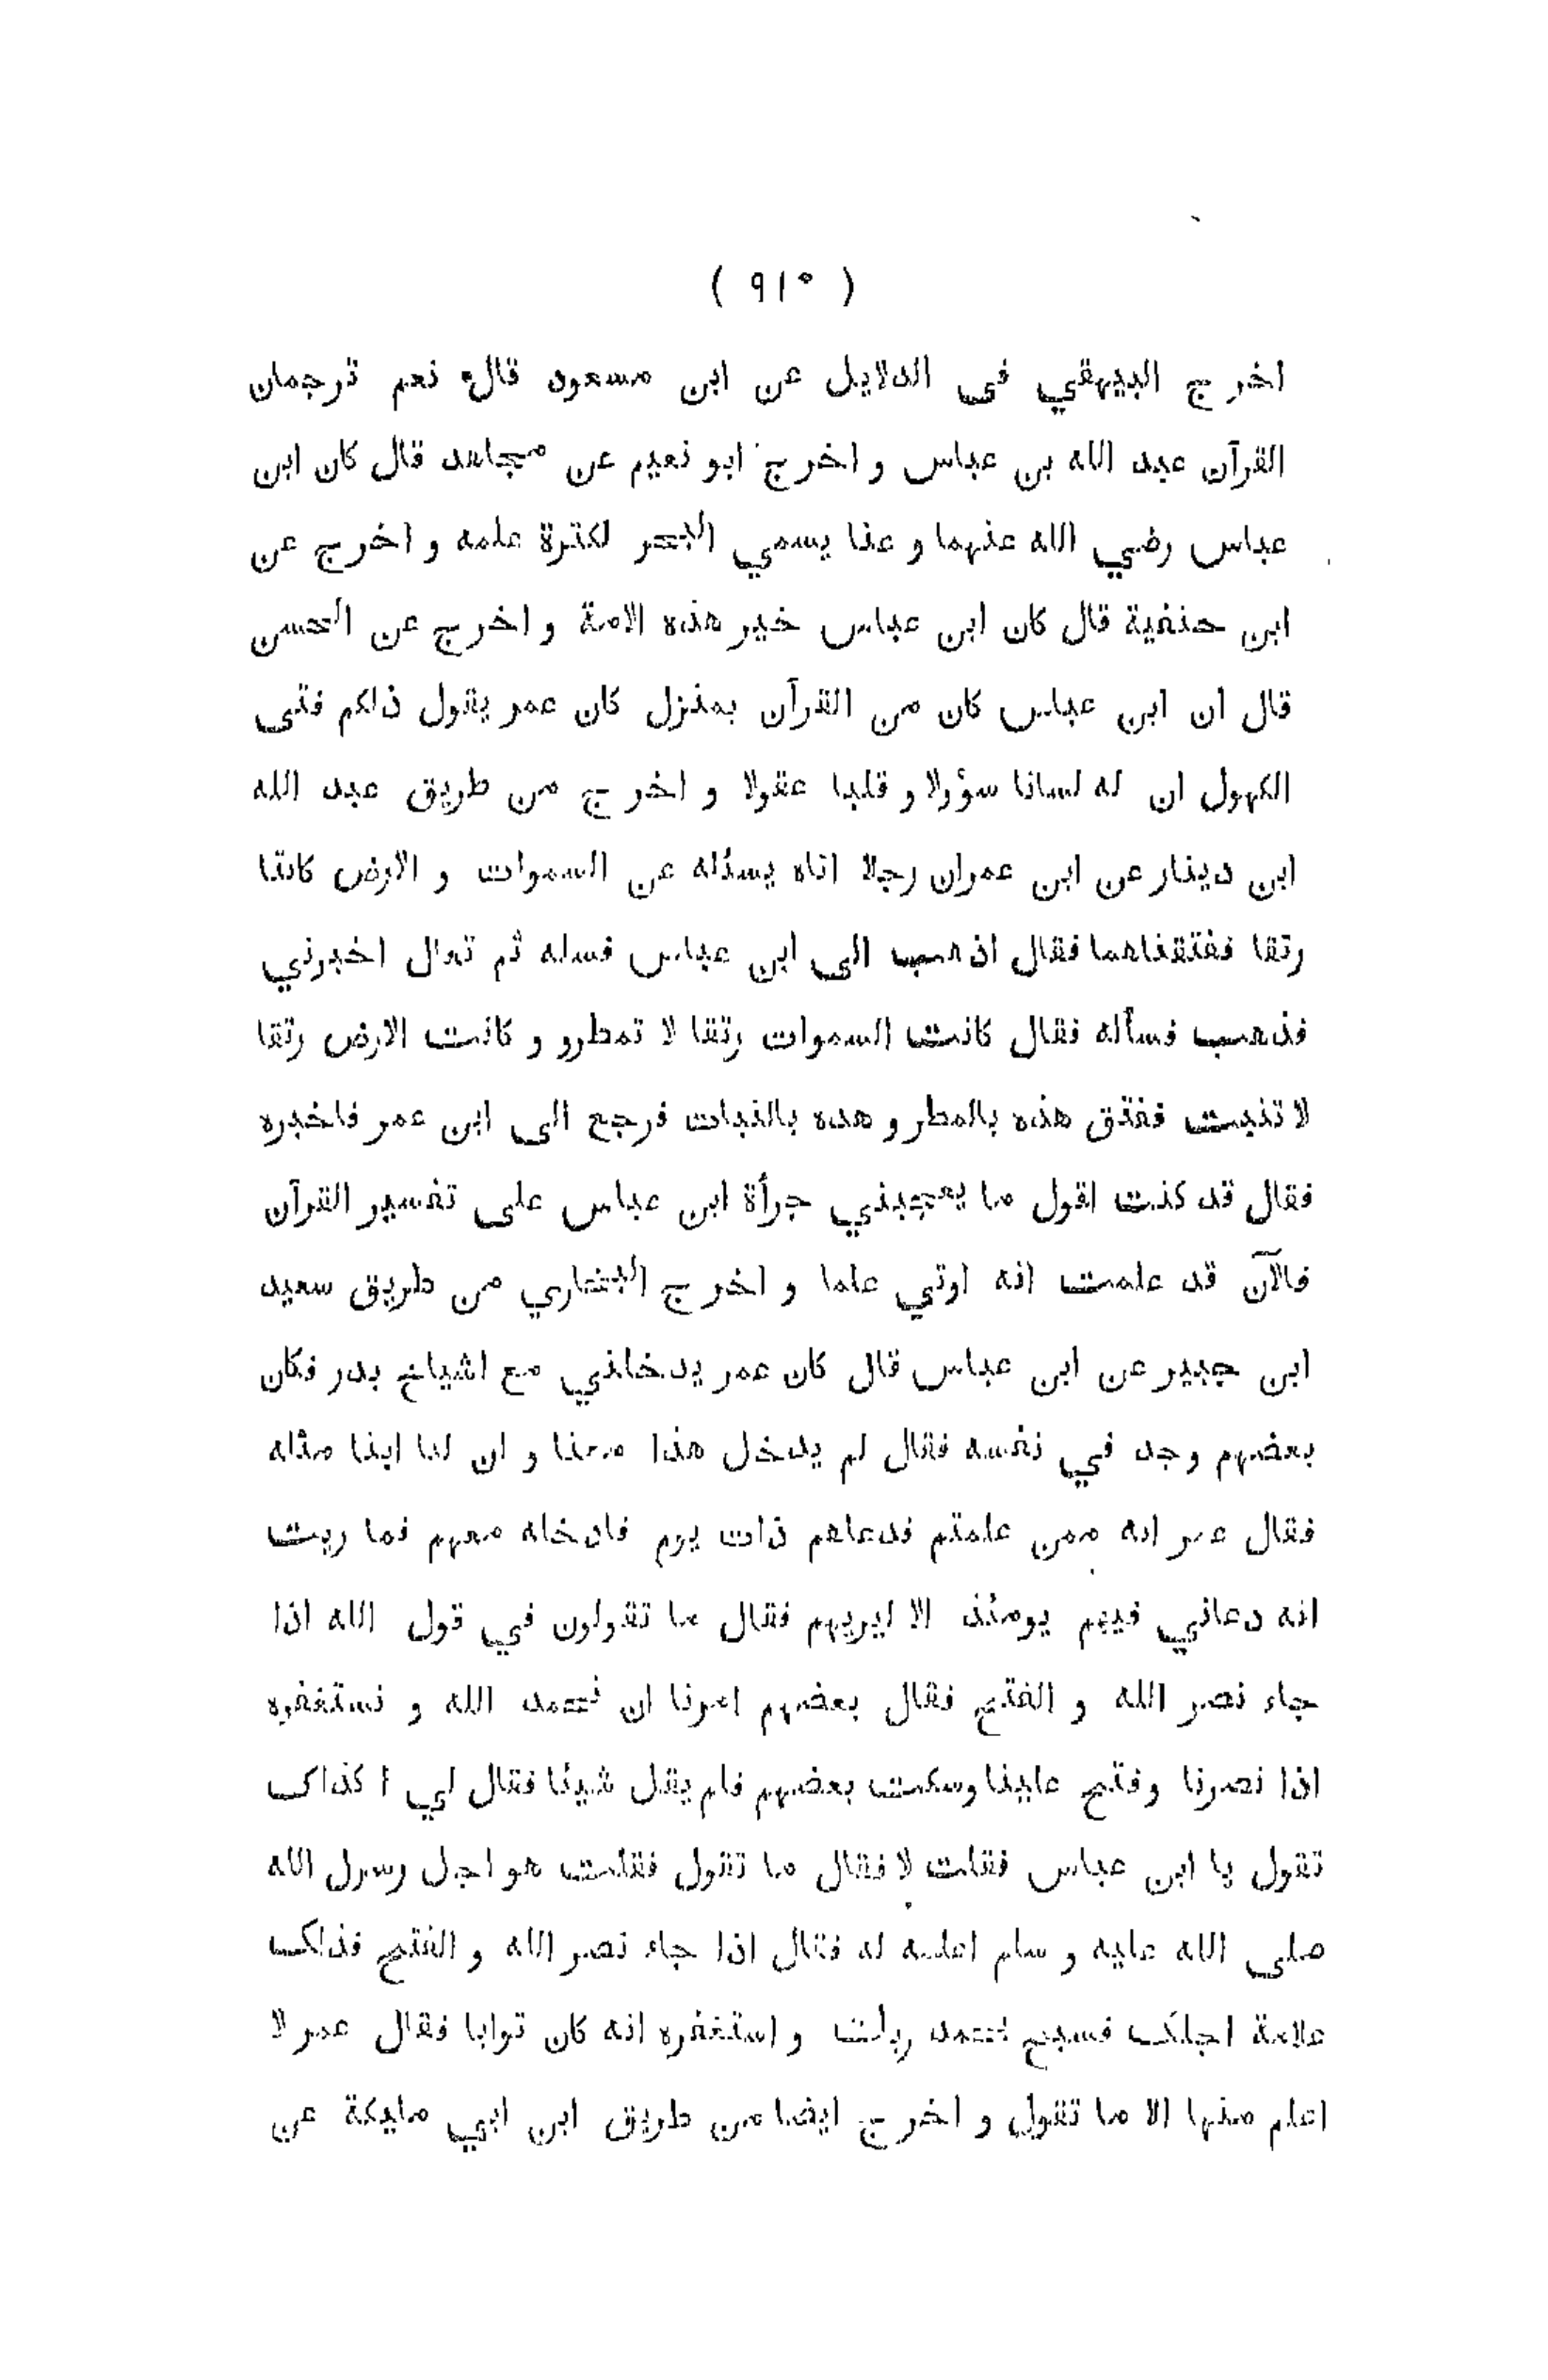 ( ٩١٠ )
اخرج البيهقي فى الدلايل عن ابن مسعود قال نعم ترجمان
القرآن عبد الله بن عباس و اخرج ابو نعيم عن مجاهد قال كان ابن
عباس رضي الله عنهما و عنا يسمي البحر لكثرة علمه و اخرج عن
ابن حنفية قال كان ابن عباس خير هذه الامة و اخرج عن الحسن
قال ان ابن عباس كان من القرآن بمنزل كان عمر يقول ذلكم فتى
الكهول ان له لسانا سؤولا و قلبا عقولا و اخرج من طريق عبد الله
ابن دينار عن ابن عمران رجلا اتاه يسئله عن السموات و الارض كانتا
رتقا ففتقناهما فقال اذهب الى ابن عباس فسله ثم تعال اخبرني
فذهب فسأله فقال كانت السموات رتقا لا تمطرو و كانت الارض رتقا
لا تنبت ففتق هذه بالمطر و هذه بالنبات فرجع الى ابن عمر فاخبره
فقال قد كنت اقول ما يعجبني جرأة ابن عباس على تفسير القرآن
فالآن قد علمت انه اوتي علما و اخرج البخاري من طريق سعيد
ابن جبير عن ابن عباس قال كان عمر يدخلني مع اشياخ بدر فكان
بعضهم وجد في نفسه فقال لم يدخل هذا معنا و ان لنا ابنا مثله
فقال عمر انه ممن علمتم فدعاهم ذات يوم فادخله معهم فما ريت
انه دعاني فيهم يومئذ الا ليريهم فقال ما تقولون في قول الله اذا
جاء نصر الله و الفتح فقال بعضهم امرنا ان نحمد الله و نستغفره
اذا نصرنا و فتح علينا وسكت بعضهم فلم يقل شيئا فقال لي ا كذاك
تقول يا ابن عباس فقلت لا فقال ما تقول فقلت هو اجل رسول الله
صلى الله عليه و سلم اعلمه له فقال اذا جاء نصر الله و الفتح فذلك
علامة اجلك فسبح بحمد ربك و استغفره انه كان توابا فقال عمر لا
اعلم منها الا ما تقول و اخرج ايضا من طريق ابن ابي مليكة عن